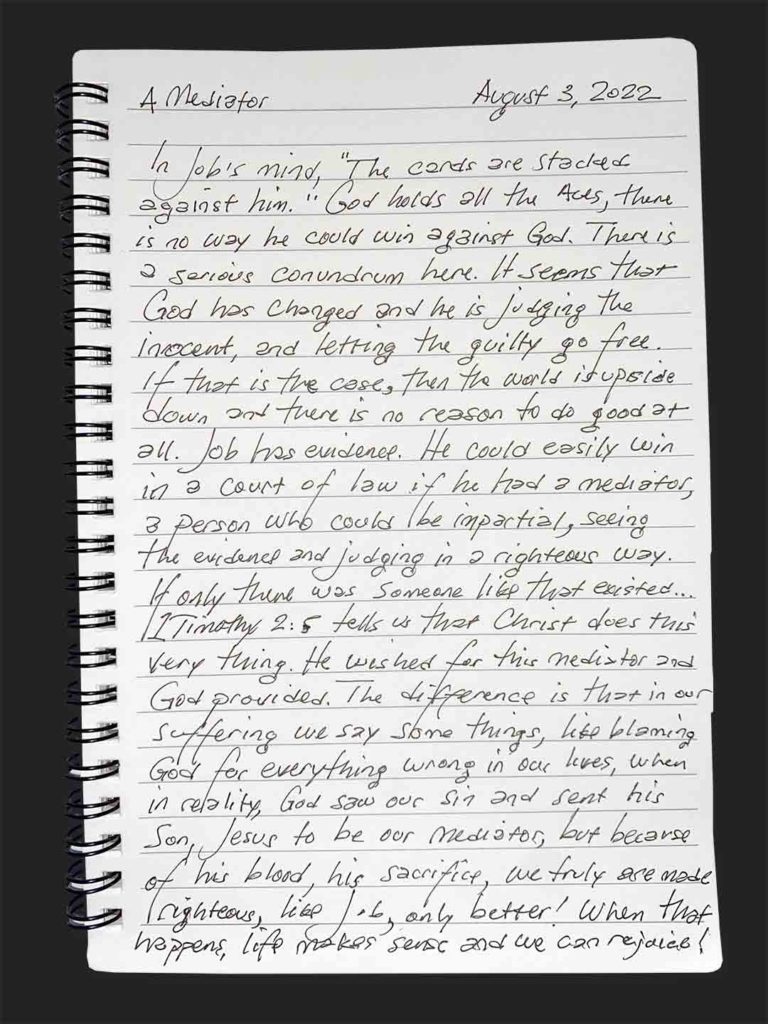 A Mediator August 3, 2022
In Job's mind, "The cards are stacked
against him." God holds all the Aces, there
is no way he could win against God. There is
a serious conundrum here. It seems that
God has changed and he is judging the
innocent, and letting the guilty go free.
If that is the case, then the world is upside
down and there is no reason to do good at
all. Job has evidence. He could easily win
in a court of law if he had a mediator,
a person who could be impartial, seeing
the evidence and judging in a righteous way.
If only there was someone like that existed...
1 Timothy 2:5 tells us that Christ does this
very thing. He wished for this mediator and
God provided. The difference is that in our
suffering we say some things, like blaming
God for everything wrong in our lives, when
in reality, God saw our sin and sent his
Son, Jesus to be our mediator, but because
of his blood, his sacrifice, we truly are made
righteous, like Job, only better! When that
happens, life makes sense and we can rejoice!